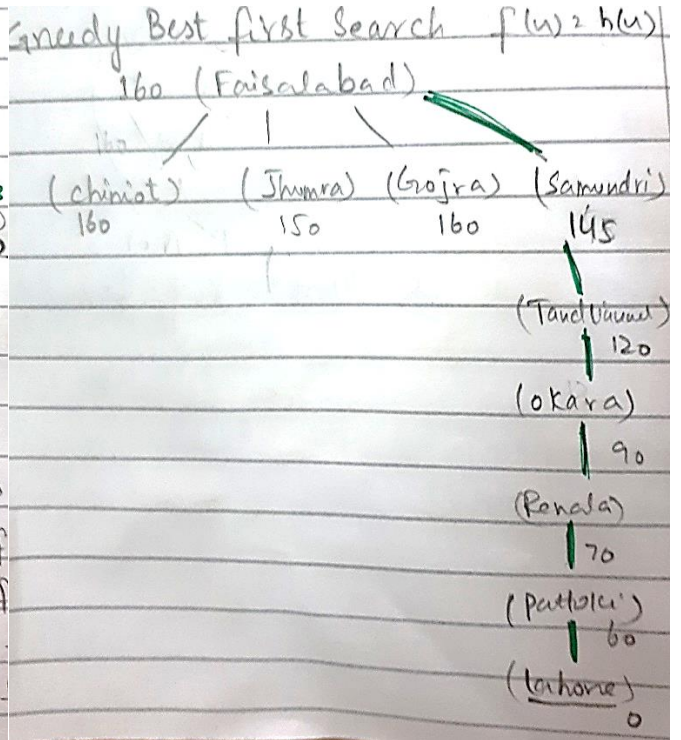 Greedy Best first Search f(n) = h(n)
160 (Faisalabad)
(Chiniot) (Jhumra) (Gojra) (Samundri)
160 150 160 145
120
(Okara)
90
(Renala)
70
(Pattoki)
60
(Lahore)
0